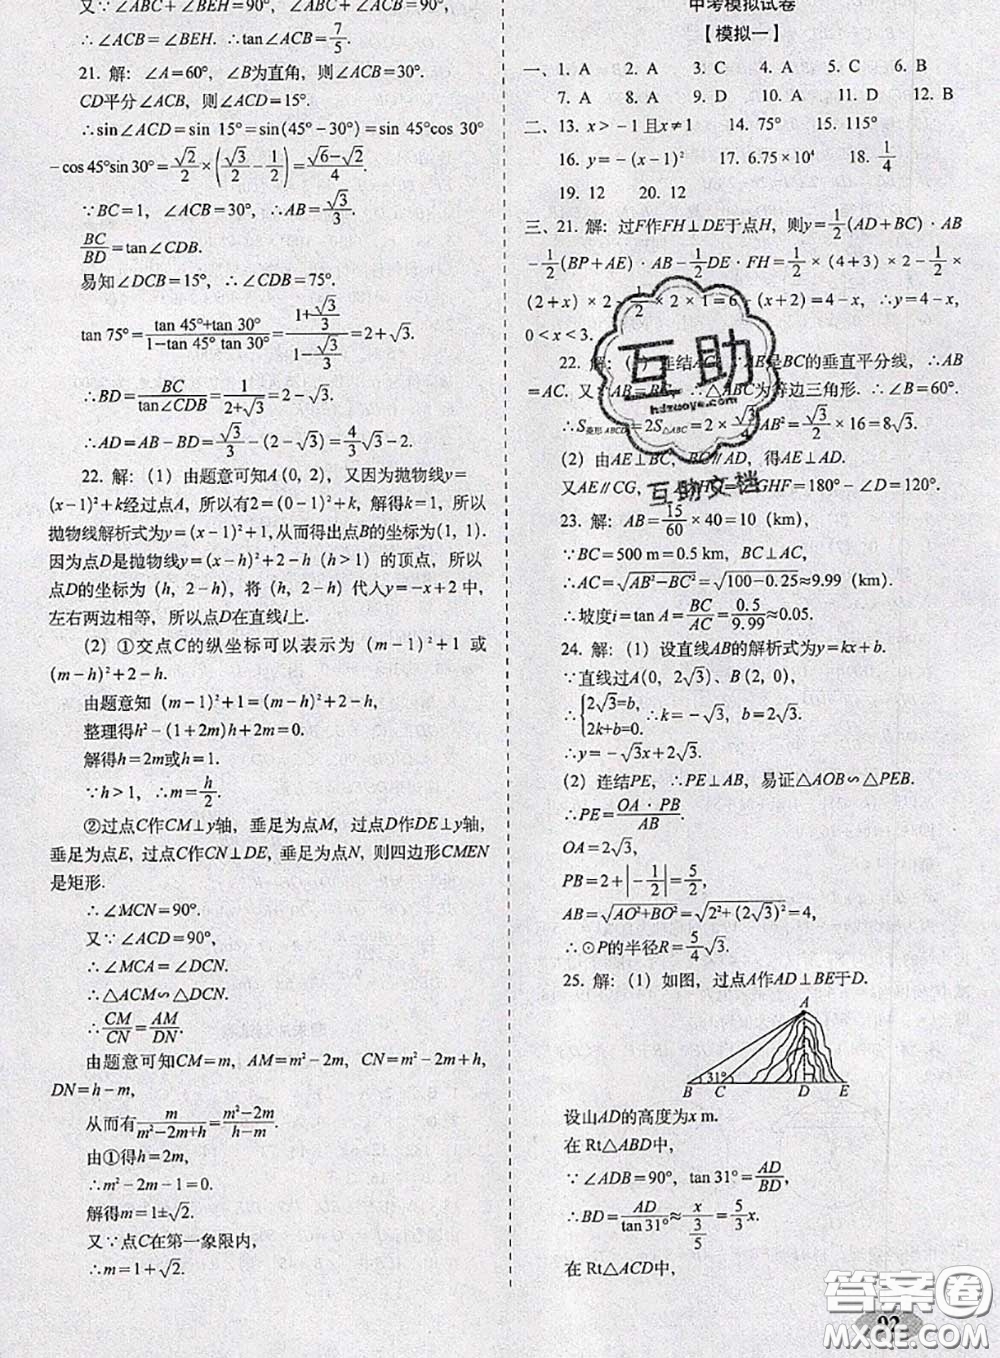 又∵∠ABC+∠BEH=90°, ∠ABC+∠ACB=90°,
∴∠ACB=∠BEH. ∴tan∠ACB=7/5.
21. 解: ∠A=60°, ∠B为直角, 则∠ACB=30°.
CD平分∠ACB, 则∠ACD=15°.
∴sin∠ACD=sin 15°=sin(45°-30°)=sin 45°cos 30°
-cos 45°sin 30°=√2/2×(√3/2-1/2)=(√6-√2)/4.
∵BC=1, ∠ACB=30°, ∴AB=√3/3.
BC/BD=tan∠CDB.
易知∠DCB=15°, ∴∠CDB=75°.
tan 75°=(tan 45°+tan 30°)/(1-tan 45° tan 30°)=(1+√3/3)/(1-√3/3)=2+√3.
∴BD=BC/tan∠CDB=1/(2+√3)=2-√3.
∴AD=AB-BD=√3/3-(2-√3)=4/3√3-2.
22. 解: (1) 由题意可知A(0, 2), 又因为抛物线y=
(x-1)²+k经过点A, 所以有2=(0-1)²+k, 解得k=1, 所以
抛物线解析式为y=(x-1)²+1, 从而得出点B的坐标为(1, 1).
因为点D是抛物线y=(x-h)²+2-h (h>1) 的顶点, 所以
点D的坐标为 (h, 2-h), 将 (h, 2-h) 代入y=-x+2中,
左右两边相等, 所以点D在直线l上.
(2) ①交点C的纵坐标可以表示为 (m-1)²+1 或
(m-h)²+2-h.
由题意知 (m-1)²+1=(m-h)²+2-h,
整理得h²-(1+2m)h+2m=0.
解得h=2m或h=1.
∵h>1, ∴m=h/2.
②过点C作CM⊥y轴, 垂足为点M, 过点D作DE⊥y轴,
垂足为点E, 过点C作CN⊥DE, 垂足为点N, 则四边形CMEN
是矩形.
∴∠MCN=90°.
又∵∠ACD=90°,
∴∠MCA=∠DCN.
∴△ACM∽△DCN.
∴CM/CN=AM/DN.
由题意可知CM=m, AM=m²-2m, CN=m²-2m+h,
DN=h-m,
从而有m/(m²-2m+h)=(m²-2m)/(h-m).
由①得h=2m,
∴m²-2m-1=0.
解得m=1±√2.
又∵点C在第一象限内,
∴m=1+√2.
中考模拟试卷
【模拟一】
一、1. A 2. A 3. C 4. A 5. C 6. B
7. A 8. A 9. D 10. A 11. D 12. B
二、13. x>-1 且x≠1 14. 75° 15. 115°
16. y=-(x-1)² 17. 6.75×10⁴ 18. 1/4
19. 12 20. 12
三、21. 解: 过F作FH⊥DE于点H, 则y=1/2(AD+BC)·AB
-1/2(BP+AE)·AB-1/2DE·FH=1/2×(4+3)×2-1/2×
(2+x)×2-1/2×2×1=6-(2+x)=4-x, ∴y=4-x,
0<x<3.
22. 解: (1) 连结AC, ∵AE是BC的垂直平分线, ∴AB
=AC. 又∵AB=BC. ∴△ABC为等边三角形. ∴∠B=60°.
∴S菱形ABCD=2S△ABC=2×√3/4AB²=√3/2×16=8√3.
(2) 由AE⊥BC, BC∥AD, 得AE⊥AD.
又AE∥CG, ∠AHC=∠GHF=180°-∠D=120°.
23. 解: AB=15/60×40=10 (km),
∵BC=500 m=0.5 km, BC⊥AC,
∴AC=√(AB²-BC²)=√(100-0.25)≈9.99 (km).
∴坡度i=tan A=BC/AC=0.5/9.99≈0.05.
24. 解: (1) 设直线AB的解析式为y=kx+b.
∵直线过A(0, 2√3)、B(2, 0),
∴{2√3=b, 2k+b=0. ∴k=-√3, b=2√3.
∴y=-√3x+2√3.
(2) 连结PE, ∴PE⊥AB, 易证△AOB∽△PEB.
∴PE=OA·PB/AB.
OA=2√3,
PB=2+|-1/2|=5/2,
AB=√(AO²+BO²)=√(2²+(2√3)²)=4,
∴⊙P的半径R=5/4√3.
25. 解: (1) 如图, 过点A作AD⊥BE于D.
A
31°
B C D E
设山AD的高度为x m.
在 Rt△ABD中,
∵∠ADB=90°, tan 31°=AD/BD,
∴BD=AD/tan 31°≈x/(3/5)=5/3x.
在 Rt△ACD中,
92
互助
hdzuoye.com
互助文档
答案圈
MXQE.COM